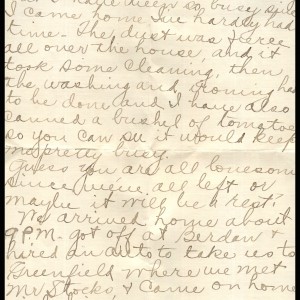 have been so busy since
I came home I've hardly had
time - The dust was free
all over the house, and it
took some cleaning, then
the washing and ironing had
to be done and I have also
canned a bushel of tomatoes
so you can see it would keep
me pretty busy.
Guess you are all lonesome
since we've all left or
maybe it will be a rest,
We arrived home about
9 P.M. got off at Berdan &
hired an auto to take us to
Greenfield where we met
Mr Stocks, & came on home